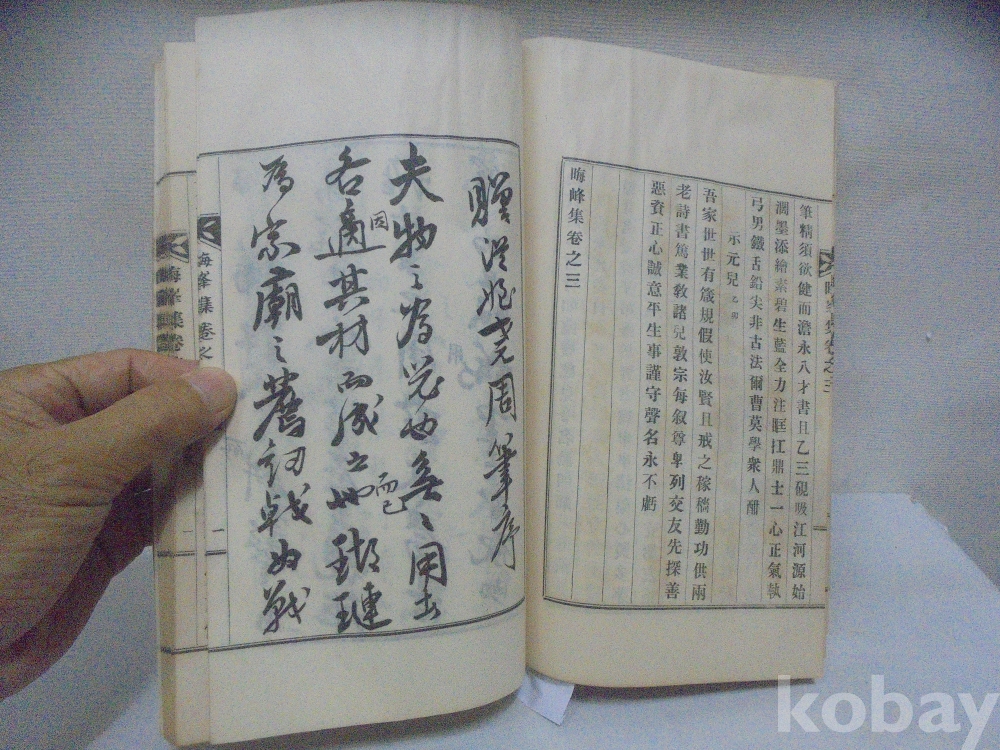 筆精須欲健而澹永八才書且乙三硯吸江河源始
潤墨添繪素碧生藍全力注眶扛鼎士一心正氣執
弓男鐵舌鉛尖非古法爾曹莫學衆人酣
示元兒 乙卯
吾家世世有箴規假使汝賢且戒之稼穡勤功供兩
老詩書篤業敎諸兒敦宗每叙尊卑列交友先探善
惡資正心誠意平生事謹守聲名永不虧
晦峰集卷之三
晦峯集卷之三
贈 周筆序
夫物之為 也無之用 
各適其材而成 瑚璉
因
而已
為宗廟之 戟如戰
晦峯集卷之
二
晦峯集卷
kobay